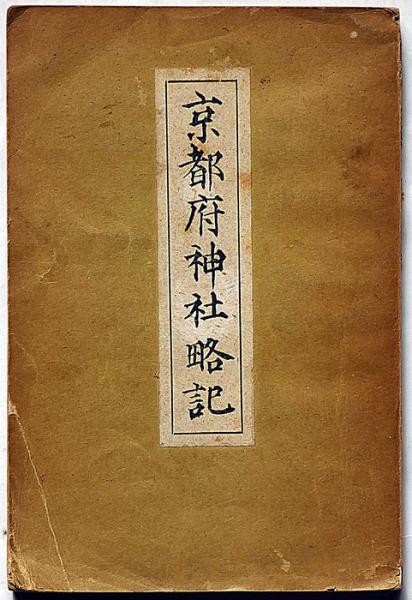 京都府神社略記